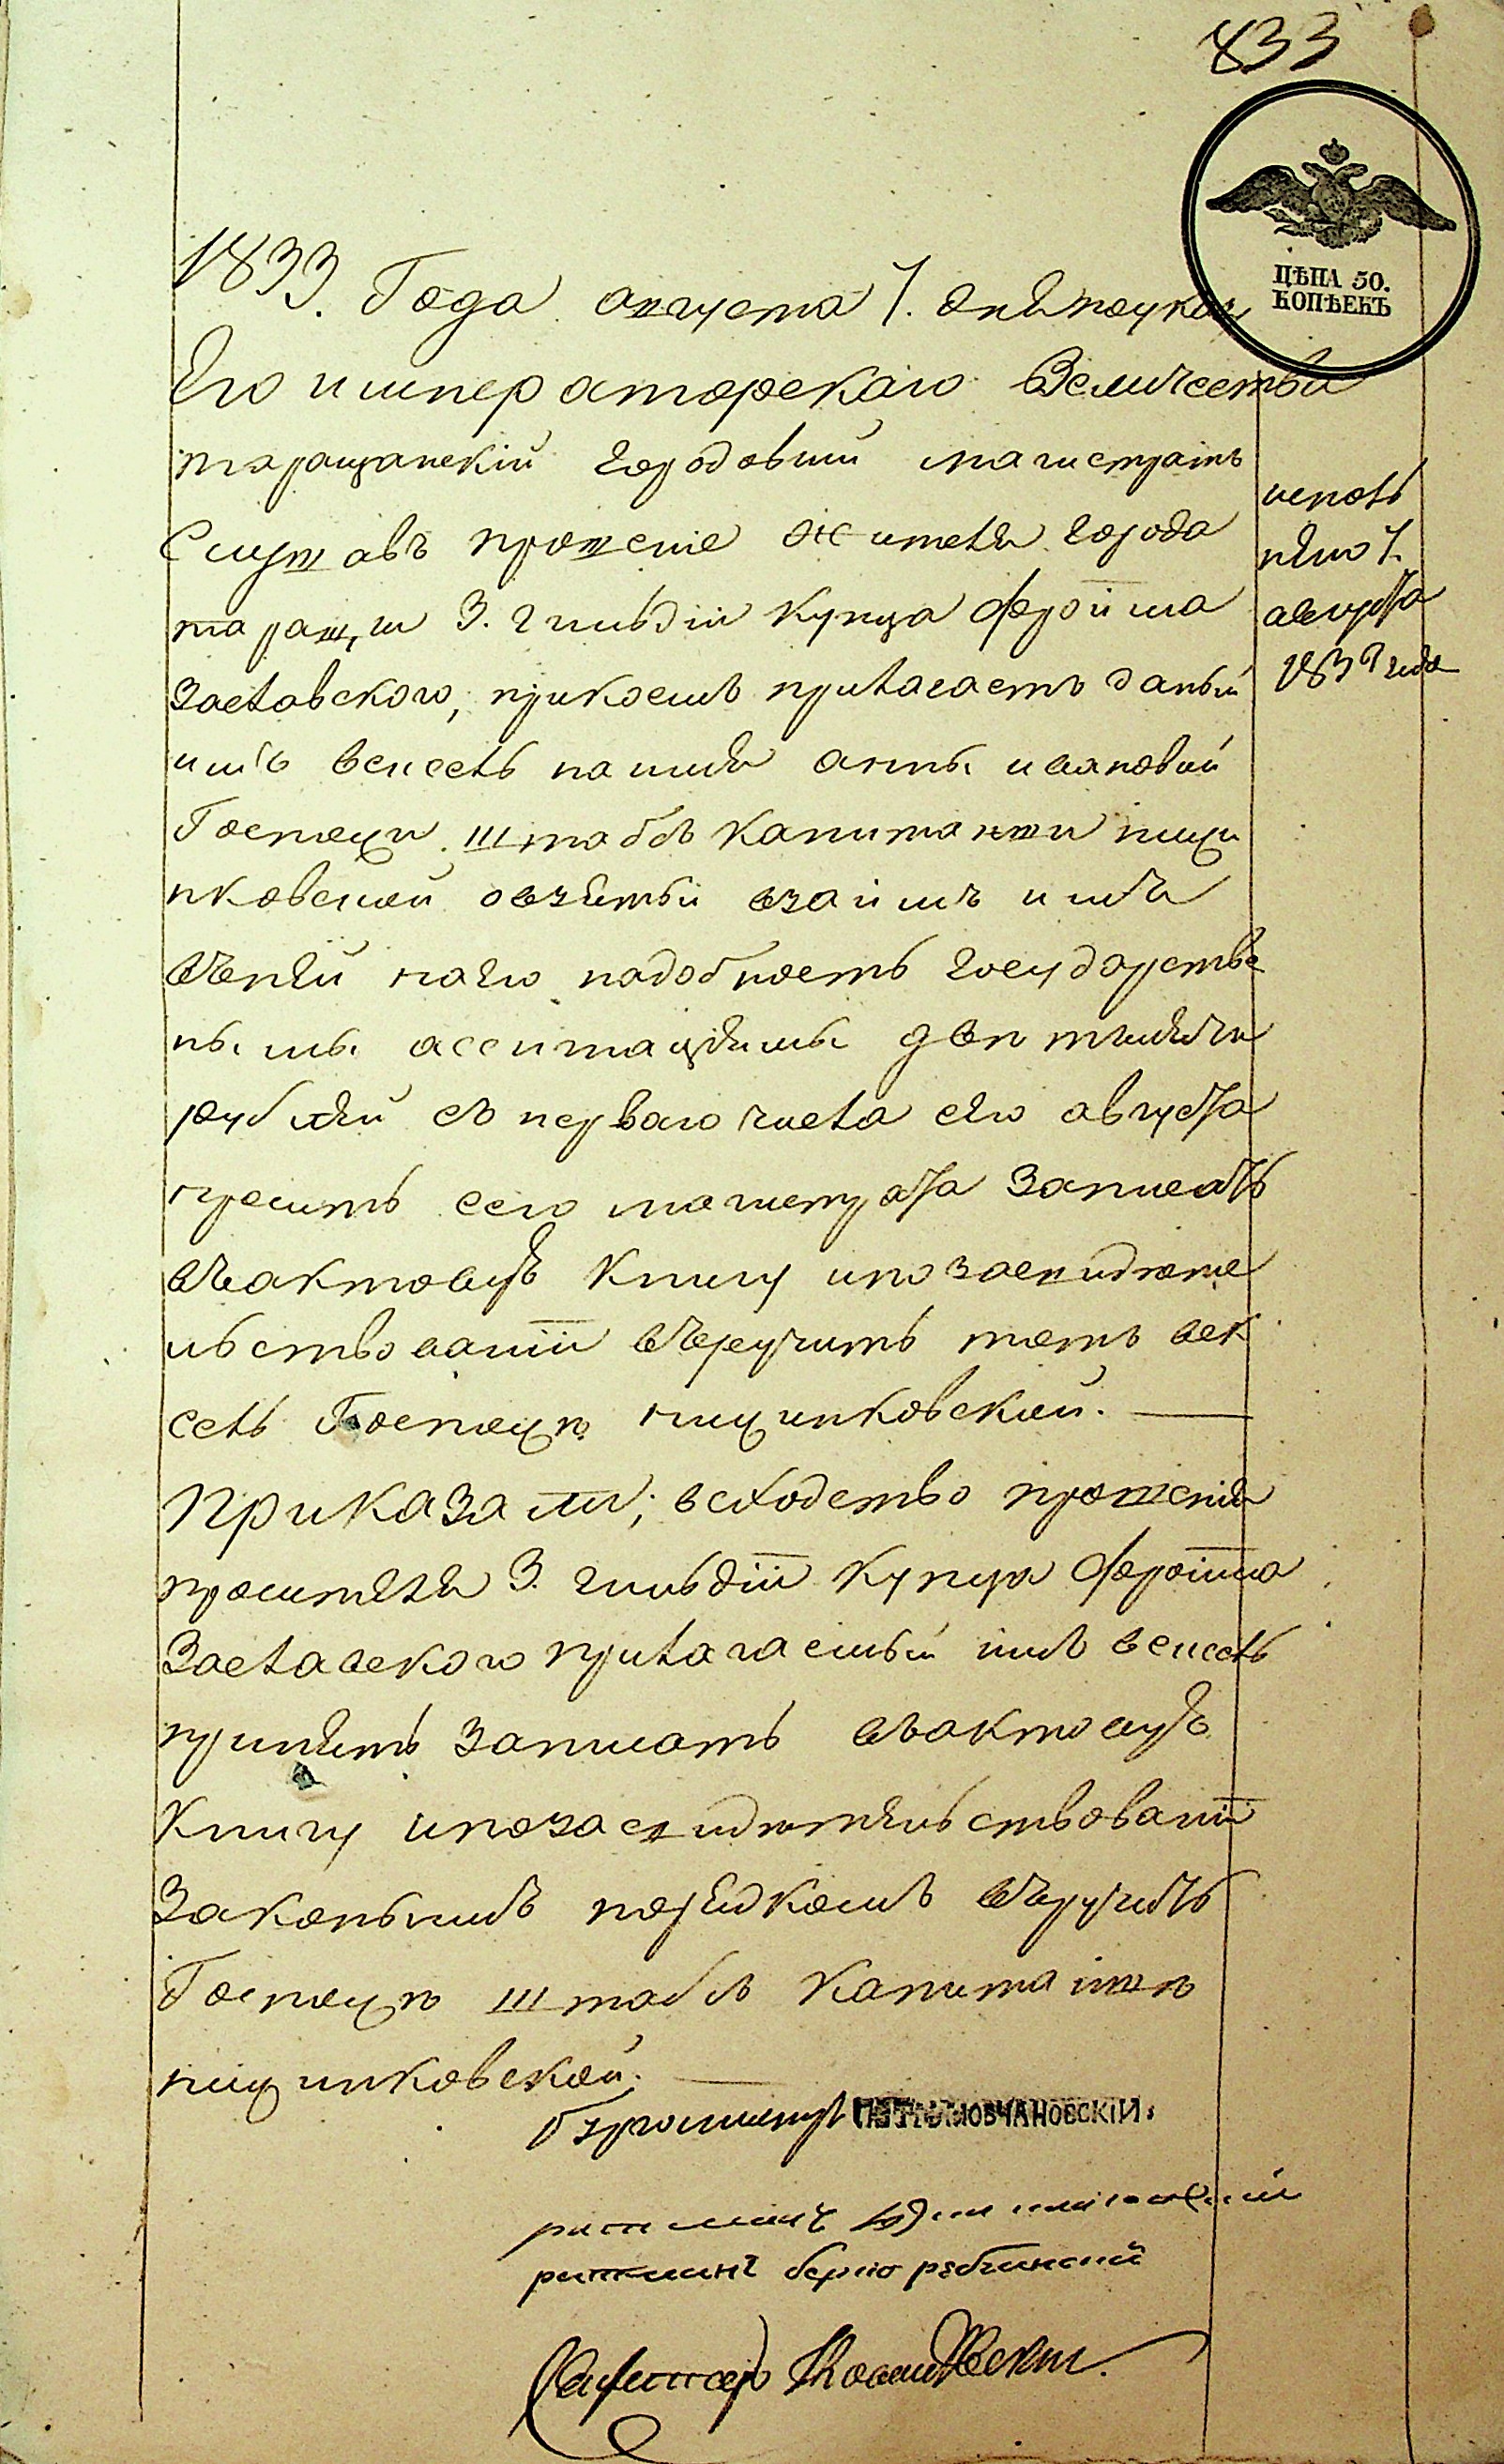 833
ЦѢНА 50.
КОПѢЕКЪ
1833. Года августа 7. дня поуказу
Его императорскаго Величества
таращанскій городовый магистратъ
Слушавъ прошеніе жителя города
таращи 3. гильдіи купца Фроима
Заславского, прикоемъ прилагаетъ даный
имъ вексель на имя анны ивановой
Госпожи штабсъ капитанши пищи
нковской овзятыи взаимъ имъ
въней насвою надобность государстве
ными ассигнаціями две тысячи
рублей съ перваго числа сего августа
проситъ сего магистрата записать
въактовую книгу ипозасвидѣте
льствованіи въручить тотъ век
сель Госпожѣ пищинковской.
Приказали; всходство прошенія
просителя 3. гильдіи купца Фроима
Заславского прилагаемый имъ вексель
принять записать въактовую
книгу ипозасвидѣтельствованіи
Законнымъ порядкомъ въручить
Госпожѣ штабсъ капитаншѣ
пищинковской.
исполн
нено 7.
августа
1833 года
бургомистръ ПЕТРЪ МОВЧАНОВСКІЙ.
ратманъ
ратманъ берко рабчинскій
Секретарь